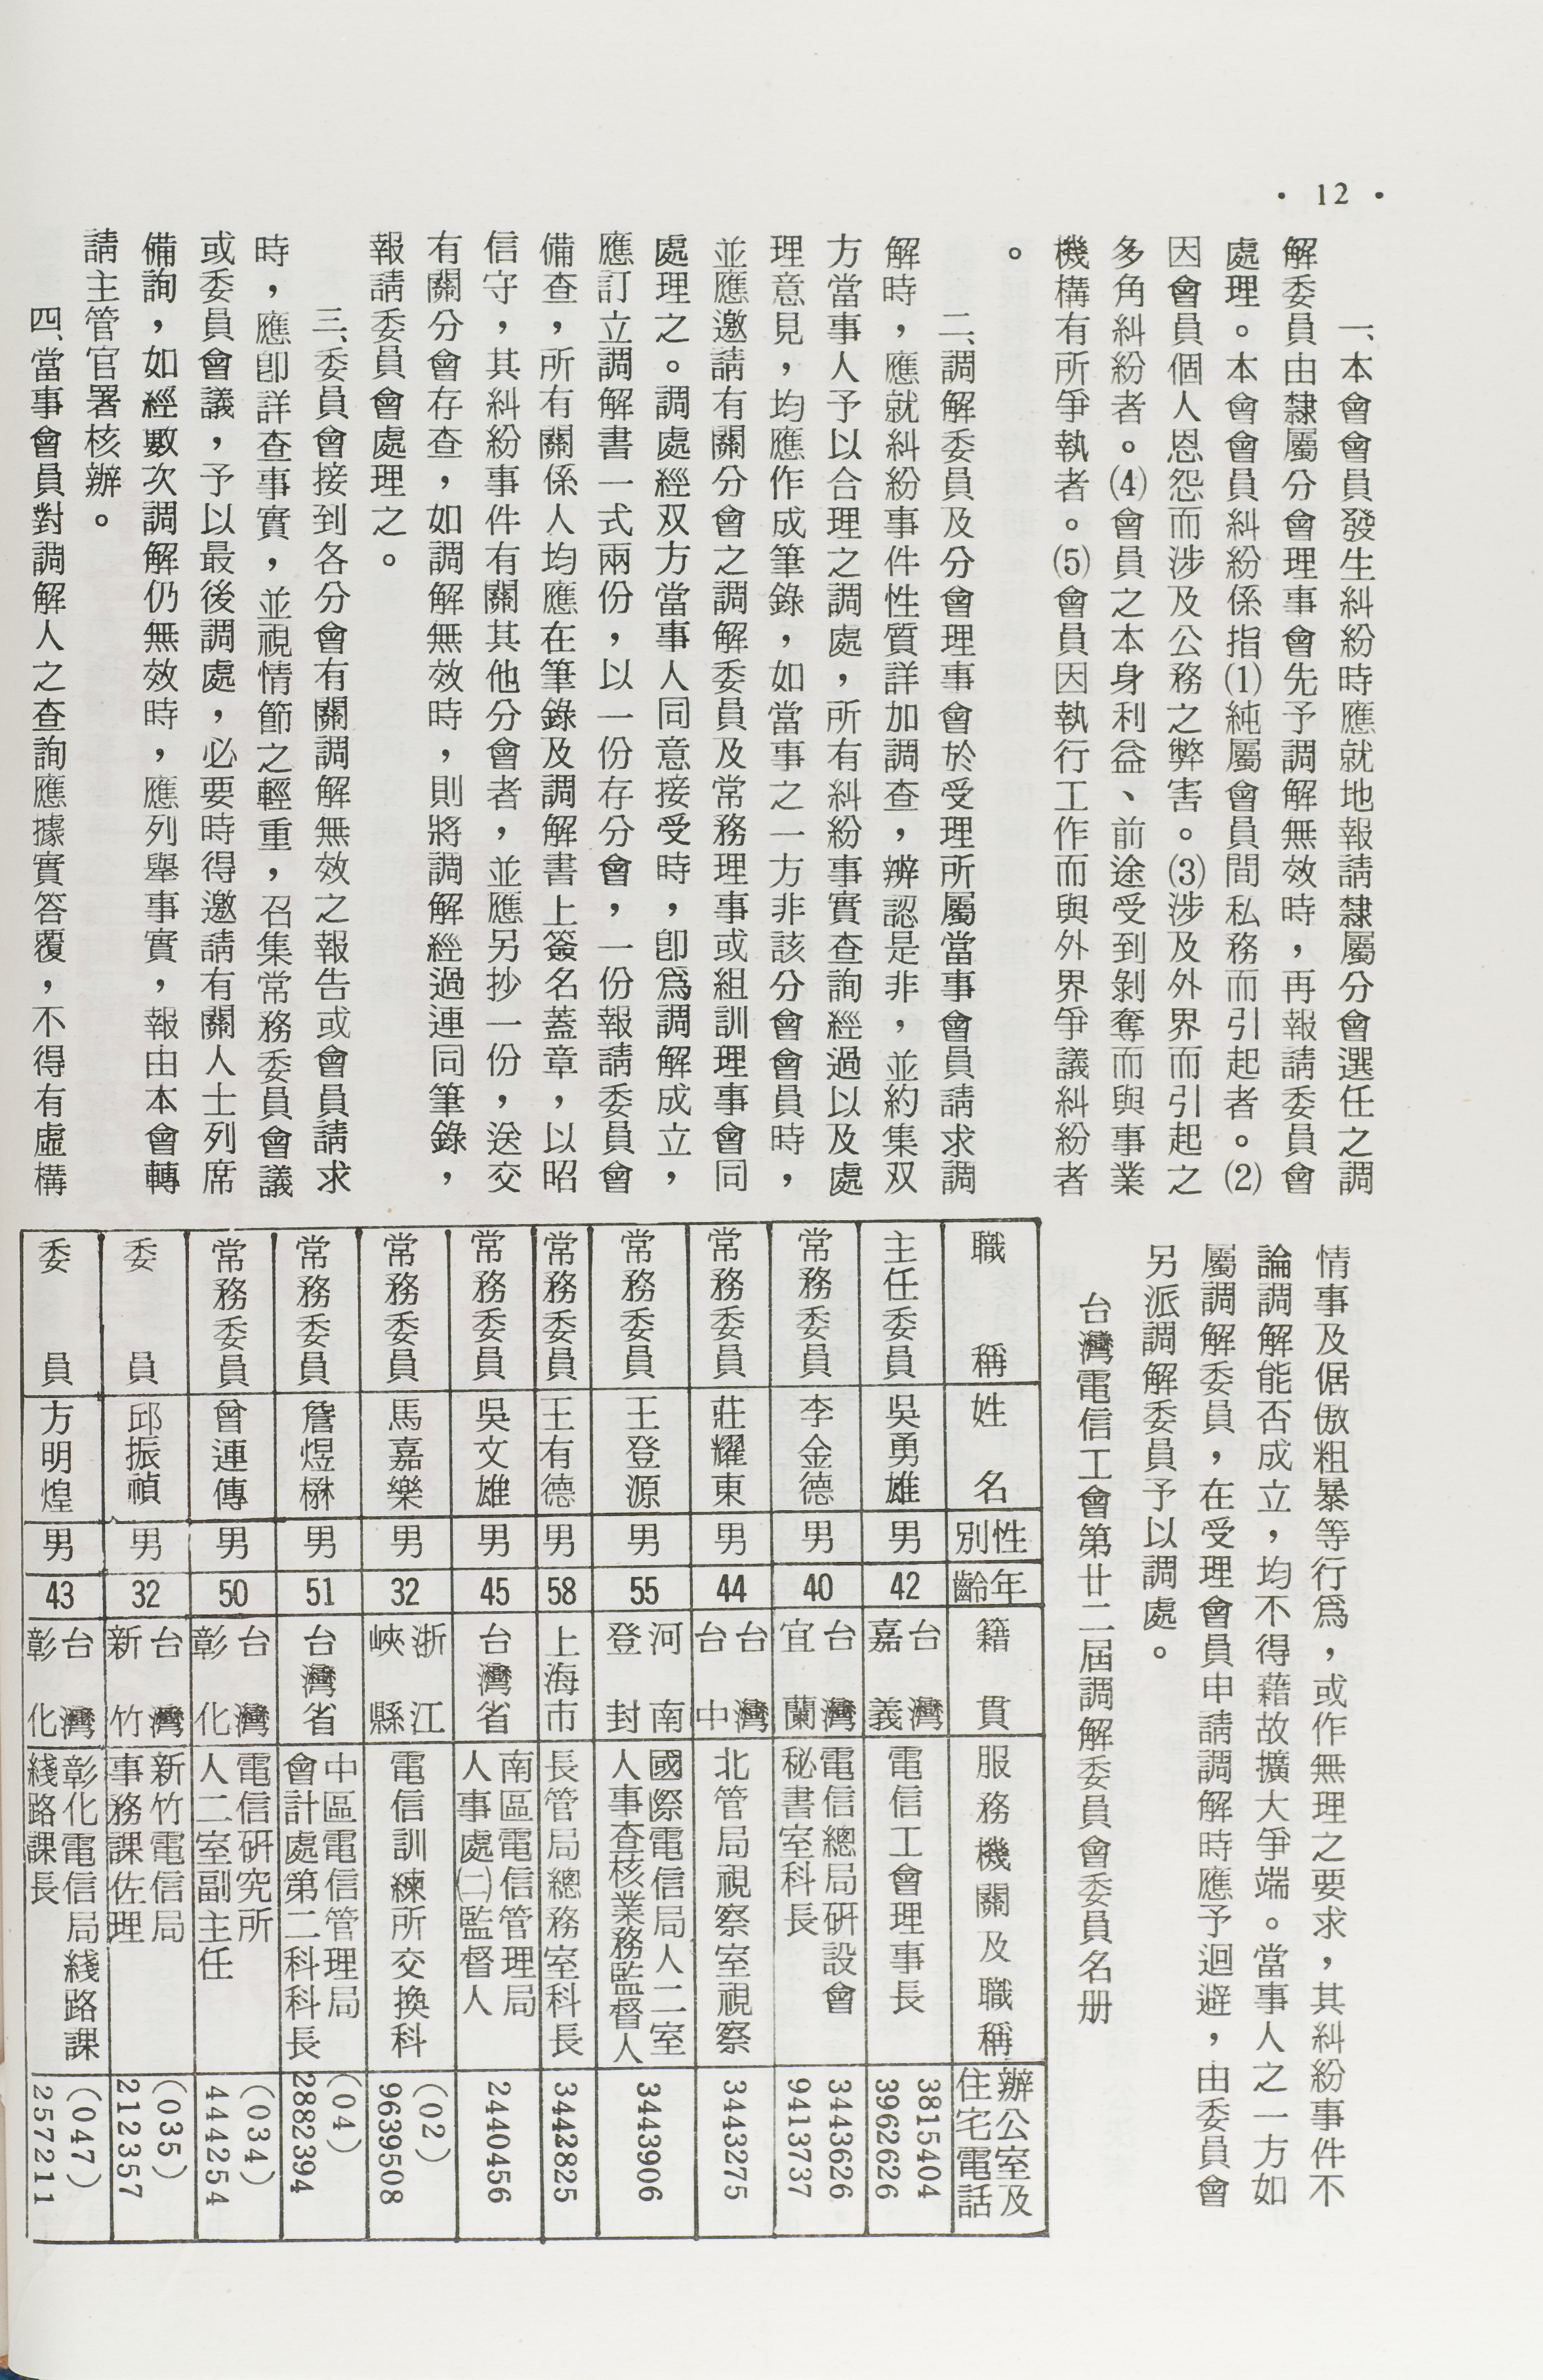 · 12 ·
一、本會會員發生糾紛時應就地報請隸屬分會選任之調
解委員由隸屬分會理事會先予調解無效時，再報請委員會
處理。本會會員糾紛係指⑴純屬會員間私務而引起者。⑵
因會員個人恩怨而涉及公務之弊害。⑶涉及外界而引起之
多角糾紛者。⑷會員之本身利益、前途受到剝奪而與事業
機構有所爭執者。⑸會員因執行工作而與外界爭議糾紛者
。
二、調解委員及分會理事會於受理所屬當事會員請求調
解時，應就糾紛事件性質詳加調查，辨認是非，並約集双
方當事人予以合理之調處，所有糾紛事實查詢經過以及處
理意見，均應作成筆錄，如當事之一方非該分會會員時，
並應邀請有關分會之調解委員及常務理事或組訓理事會同
處理之。調處經双方當事人同意接受時，卽爲調解成立，
應訂立調解書一式兩份，以一份存分會，一份報請委員會
備查，所有關係人均應在筆錄及調解書上簽名蓋章，以昭
信守，其糾紛事件有關其他分會者，並應另抄一份，送交
有關分會存查，如調解無效時，則將調解經過連同筆錄，
報請委員會處理之。
三、委員會接到各分會有關調解無效之報告或會員請求
時，應卽詳查事實，並視情節之輕重，召集常務委員會議
或委員會議，予以最後調處，必要時得邀請有關人士列席
備詢，如經數次調解仍無效時，應列舉事實，報由本會轉
請主管官署核辦。
四、當事會員對調解人之查詢應據實答覆，不得有虛構
情事及倨傲粗暴等行爲，或作無理之要求，其糾紛事件不
論調解能否成立，均不得藉故擴大爭端。當事人之一方如
屬調解委員，在受理會員申請調解時應予迴避，由委員會
另派調解委員予以調處。
台灣電信工會第廿二屆調解委員會委員名册
職稱 姓名 性別 年齡 籍貫 服務機關及職稱 辦公室及住宅電話
主任委員 吳勇雄 男 42 台灣嘉義 電信工會理事長 3815404 3962626
常務委員 李金德 男 40 台灣宜蘭 電信總局研設會秘書室科長 3443626 9413737
常務委員 莊耀東 男 44 台灣台中 北管局視察室視察 3443275
常務委員 王登源 男 55 河南登封 國際電信局人二室人事查核業務監督人 3443906
常務委員 王有德 男 58 上海市 長管局總務室科長 3442825
常務委員 吳文雄 男 45 台灣省 南區電信管理局人事處㈡監督人 2440456
常務委員 馬嘉樂 男 32 浙江峽縣 電信訓練所交換科 (02) 9639508
常務委員 詹煜楙 男 51 台灣省 中區電信管理局會計處第二科科長 (04) 2882394
常務委員 曾連傳 男 50 台灣彰化 電信研究所人二室副主任 (034) 444254
委員 邱振禎 男 32 台灣新竹 新竹電信局事務課佐理 (035) 212357
委員 方明煌 男 43 台灣彰化 彰化電信局綫路課綫路課長 (047) 257211